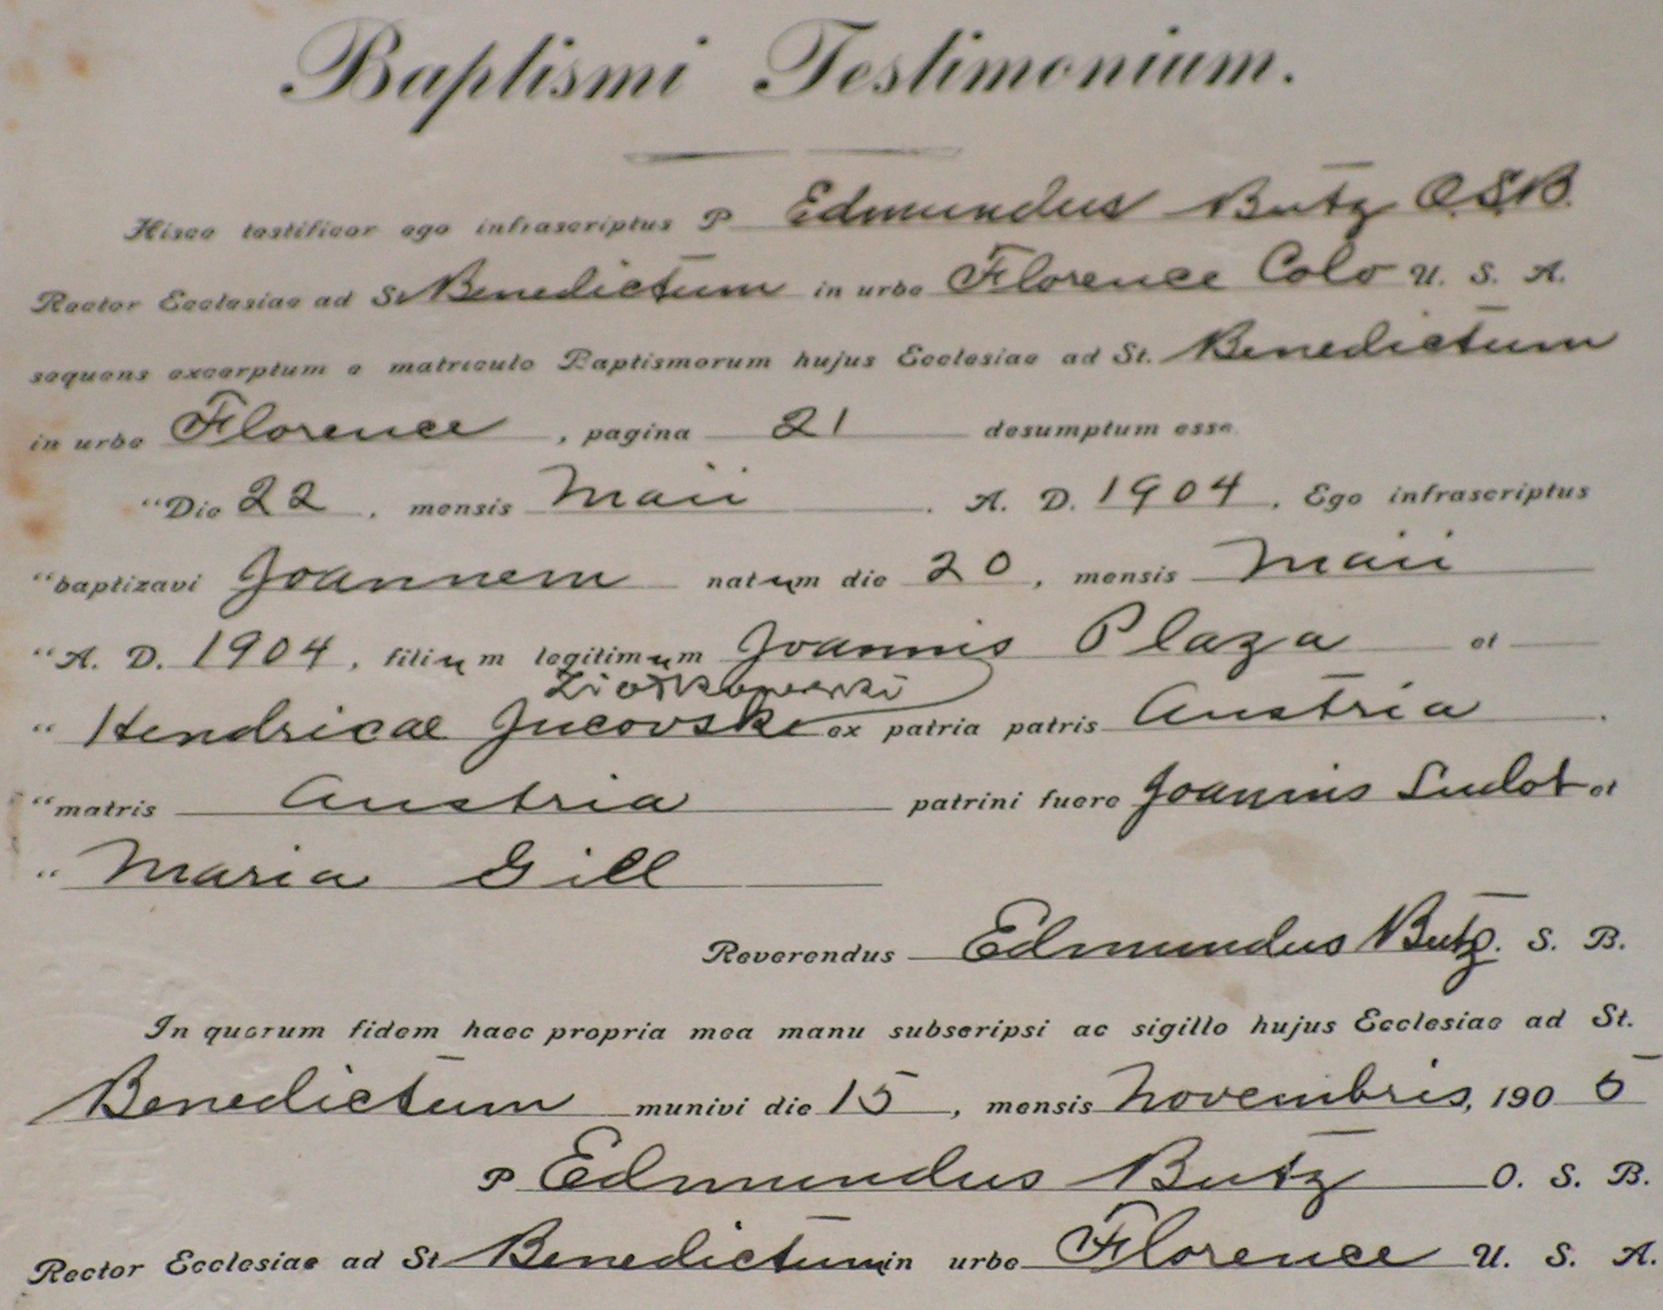 Baptismi Testimonium.
Hisce testificor ego infrascriptus P Edmundus Butz O.S.B.
Rector Ecclesiae ad St Benedictum in urbe Florence Colo U. S. A.
sequens excerptum e matriculo Baptismorum hujus Ecclesiae ad St. Benedictum
in urbe Florence, pagina 21 desumptum esse
"Die 22, mensis Maii. A. D. 1904, Ego infrascriptus
"baptizavi Joannem natum die 20, mensis Maii
"A. D. 1904, filium legitimum Joannis Plaza et
Ziołkowski
" Hendricae Jucovski ex patria patris Austria.
"matris Austria patrini fuere Joannis Sudol et
" Maria Gill
Reverendus Edmundus Butz. S. B.
In quorum fidem haec propria mea manu subscripsi ac sigillo hujus Ecclesiae ad St.
Benedictum munivi die 15, mensis Novembris, 190 5
P Edmundus Butz O. S. B.
Rector Ecclesiae ad St Benedictum in urbe Florence U. S. A.